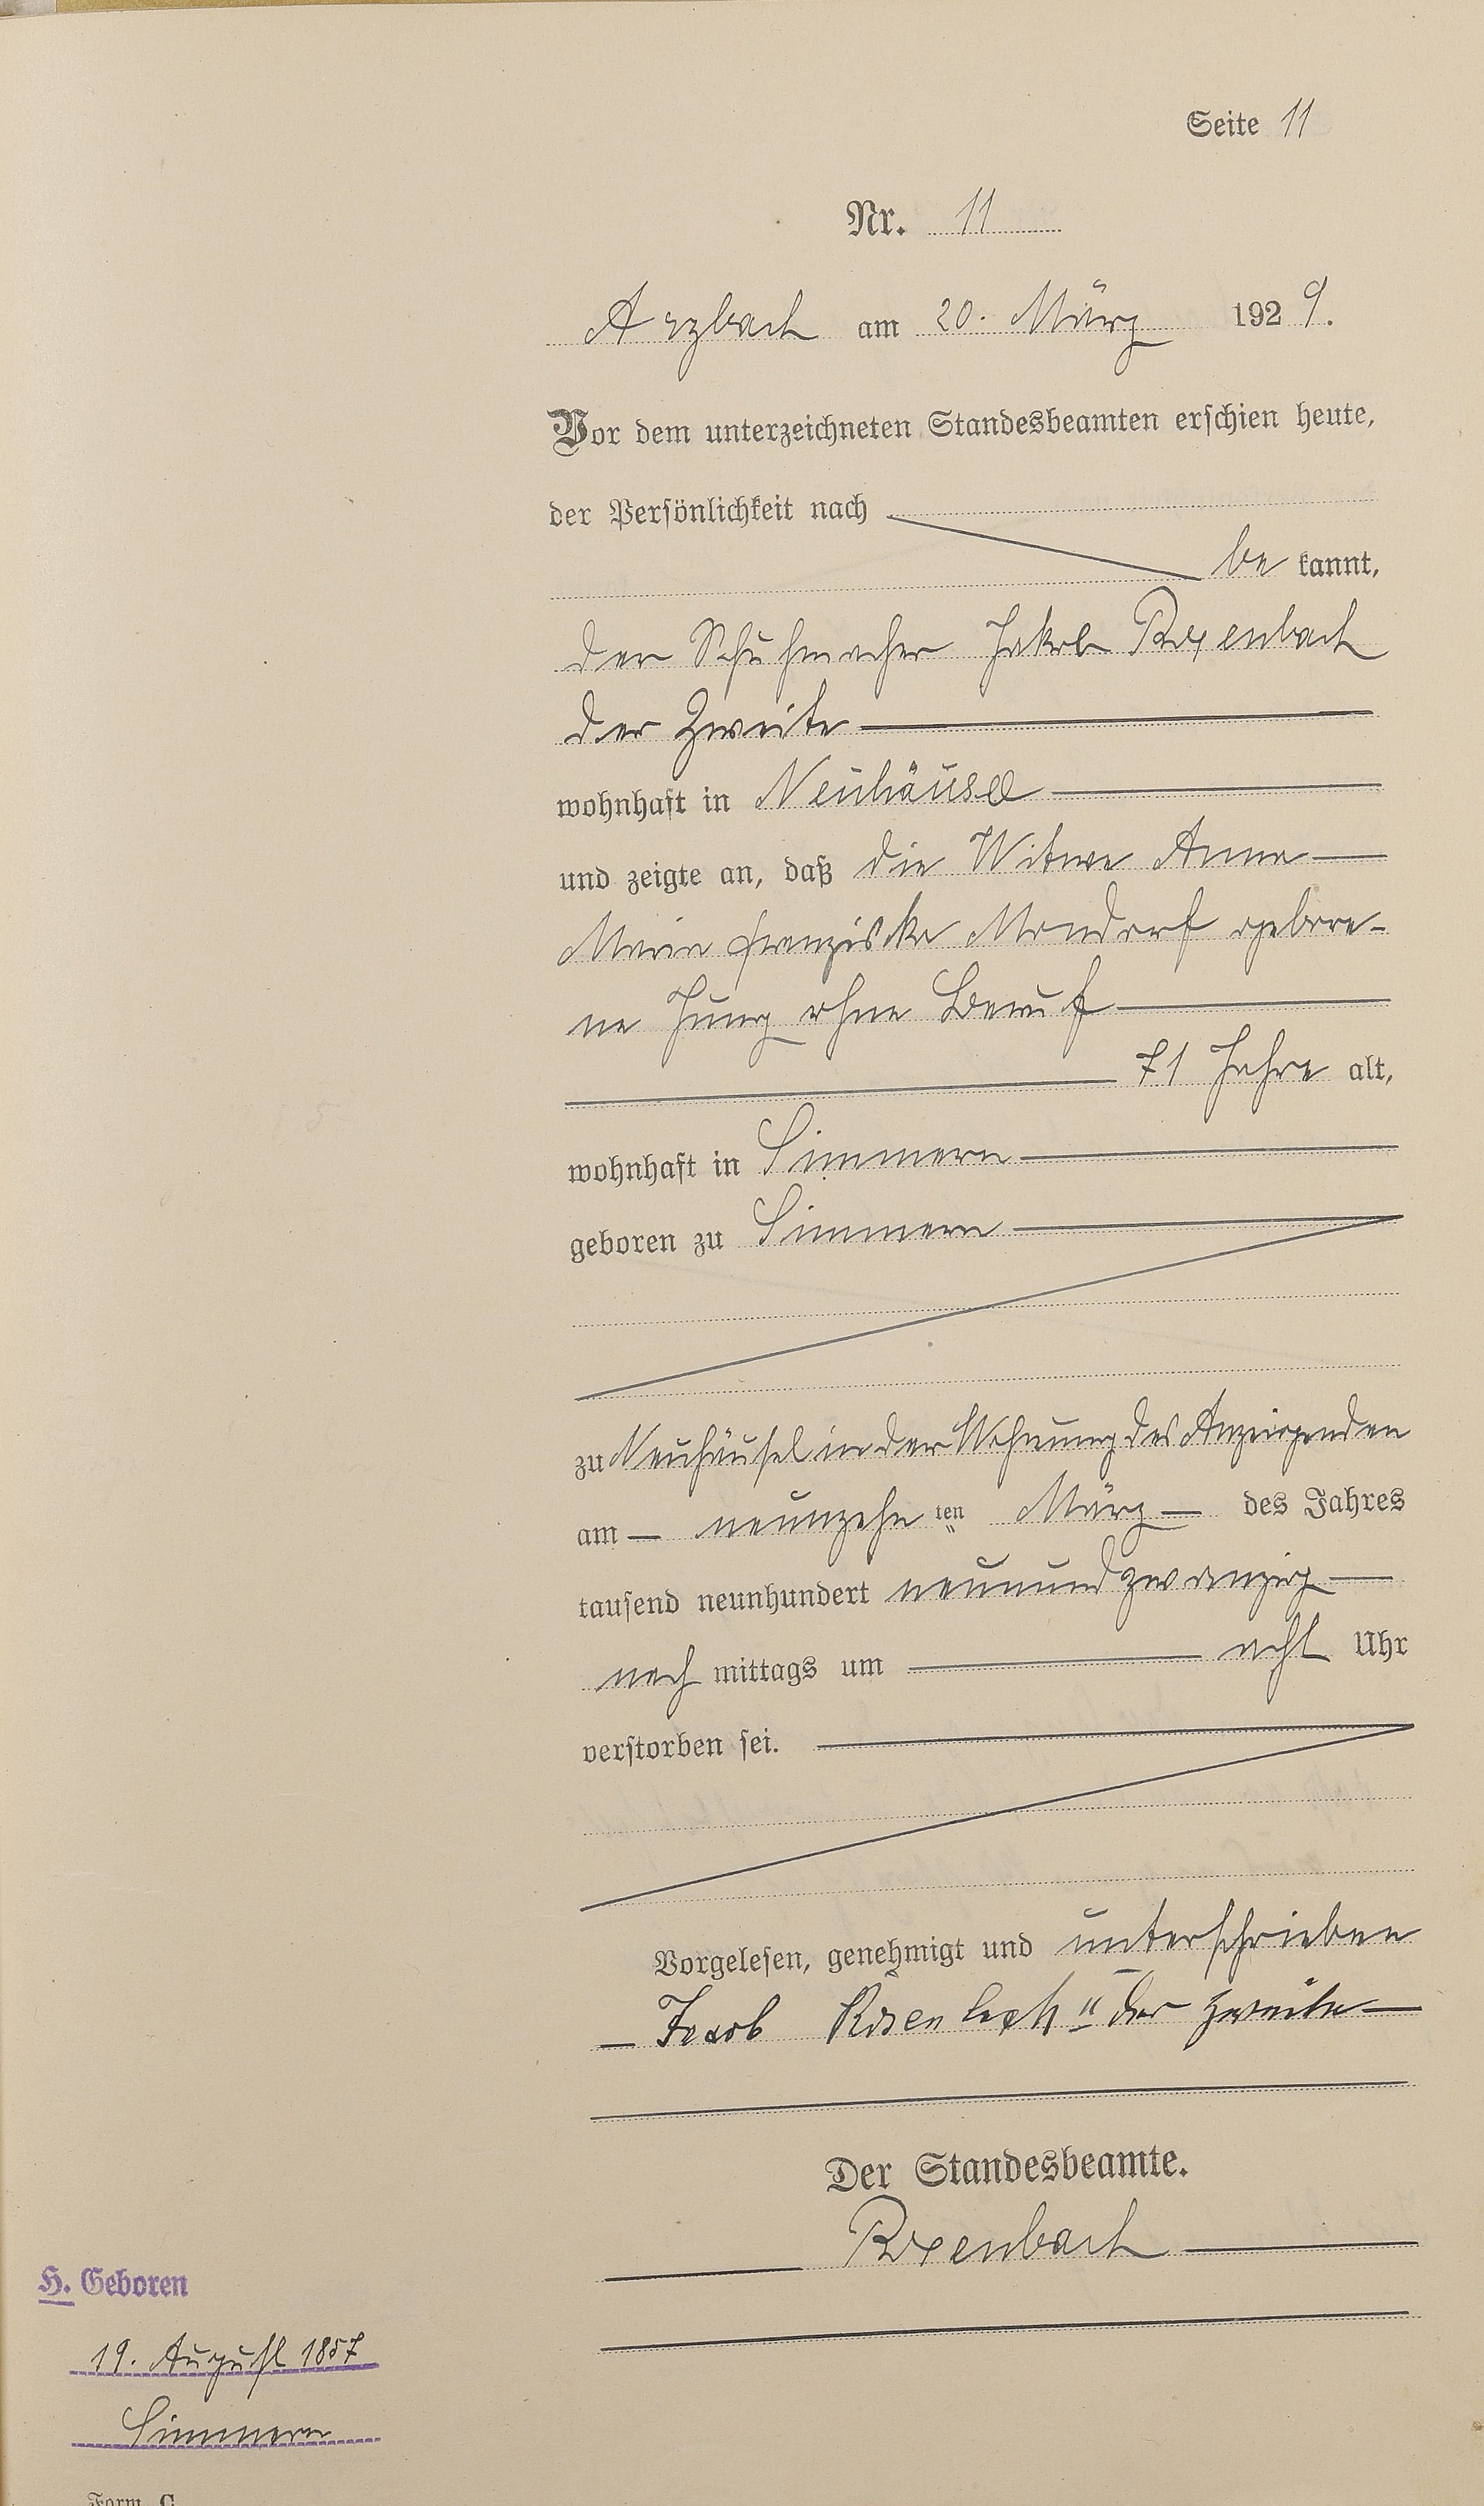 Seite 11
Nr. 11
Arzbach am 20. März 1929.
Vor dem unterzeichneten Standesbeamten erschien heute,
der Persönlichkeit nach
be kannt,
der Schuhmacher Jakob Rosenbach
der Zweite
wohnhaft in Neuhäusel
und zeigte an, daß die Witwe Anna
Maria Franziska Mondorf gebore-
ne Jung ohne Beruf
71 Jahre alt,
wohnhaft in Simmern
geboren zu Simmern
zu Neuhäusel in der Wohnung des Anzeigenden
am neunzehn ten März des Jahres
tausend neunhundert neunundzwanzig
nach mittags um acht Uhr
verstorben sei.
Vorgelesen, genehmigt und unterschrieben
Jacob Rosenbach II der Zweite
Der Standesbeamte.
Rosenbach
H. Geboren
19. August 1857
Simmern
Form. C